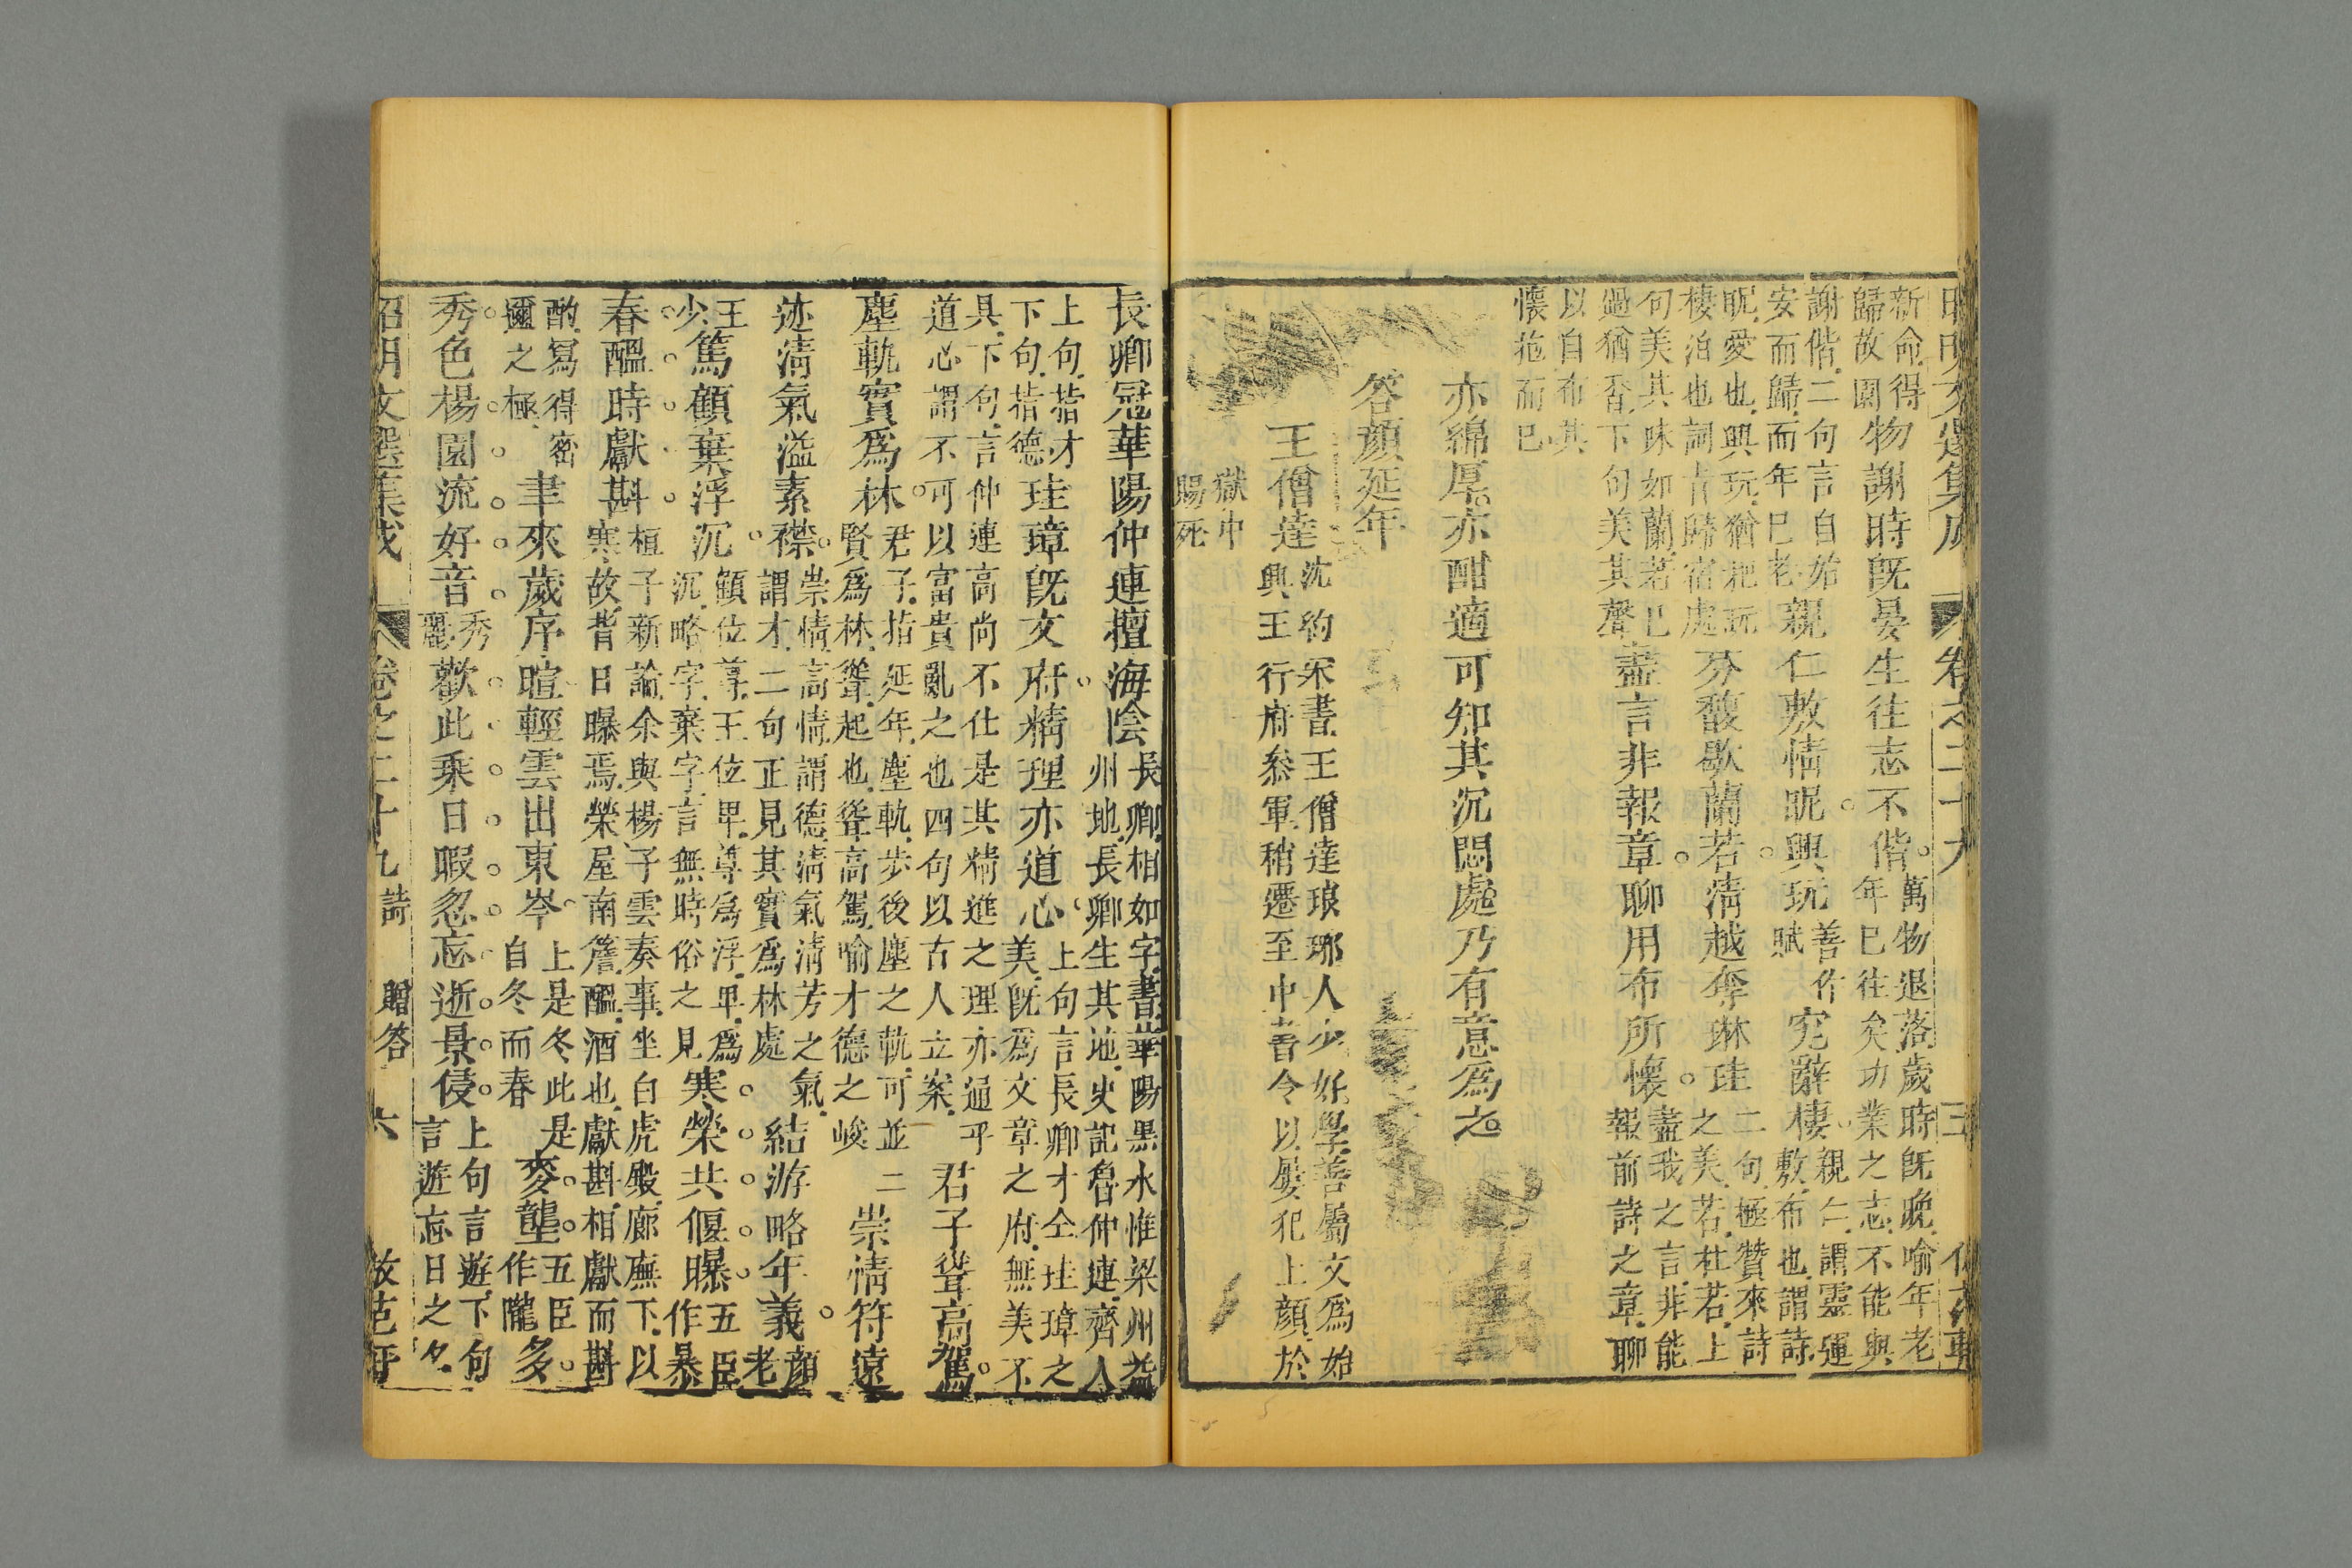 新命得歸故園物謝時既晏生往志不偕萬物退落歲時既晚喻年老年巳往矣功業之志不能與
謝偕二句言自始安而歸而年巳老親仁敷情昵興玩善作賦究辭棲親仁謂靈運敷布也謂詩
昵愛也興玩猶耙玩棲泊也詞肯歸宿處芬馥歇蘭若清越奪琳珪二句極贊來詩之美若杜若上
句美其味如蘭若巳過猶香下句美其聲盡言非報章聊用布所懷盡我之言非能報前詩之章聊
以自布其懷抱而巳
亦綿厚亦酣適可知其沉悶處乃有意為之
答顏延年
王僧達沈約宋書王僧達琅琊人少好學善屬文爲始興王行府叅軍稍遷至中書令以屢犯上顏於
獄中賜死
長卿冠華陽仲連擅海陰長卿相如字書華陽黒水惟梁州益州地長卿生其地史記魯仲連齊人
上句指才下句指德珪璋既文府精理亦道心上句言長卿才仝珪璋之美既爲文章之府無美不
具下句言仲連高尚不仕是其精進之理亦通乎道心謂不可以富貴亂之也四句以古人立案君子聳高駕
塵軌實爲林君子指延年塵軌步後塵之軌可並賢爲林聳起也聳高駕喻才德之峻二崇情符遠
迹清氣溢素襟崇情高情謂德清氣清芳之氣謂才二句正見其實爲林處結游略年義顏老
王少篤顧棄浮沉顧位尊王位卑尊爲浮卑爲沉略字棄字言無時俗之見寒榮共偃曝五臣作暴
春醞時獻斟桓子新論余與楊子雲奏事坐白虎殿廊廡下以寒故背日曝焉榮屋南簷醞酒也獻斟相獻而斟
酌寫得密邇之極聿來歲序暄輕雲出東岑上是冬此是自冬而春麥壟五臣作隴多
秀色楊園流好音秀麗歡此乘日暇忽忘逝景侵上句言遊下句言遊忘日之夕
昭明文選集成 卷之二十九 詩 贈答 六